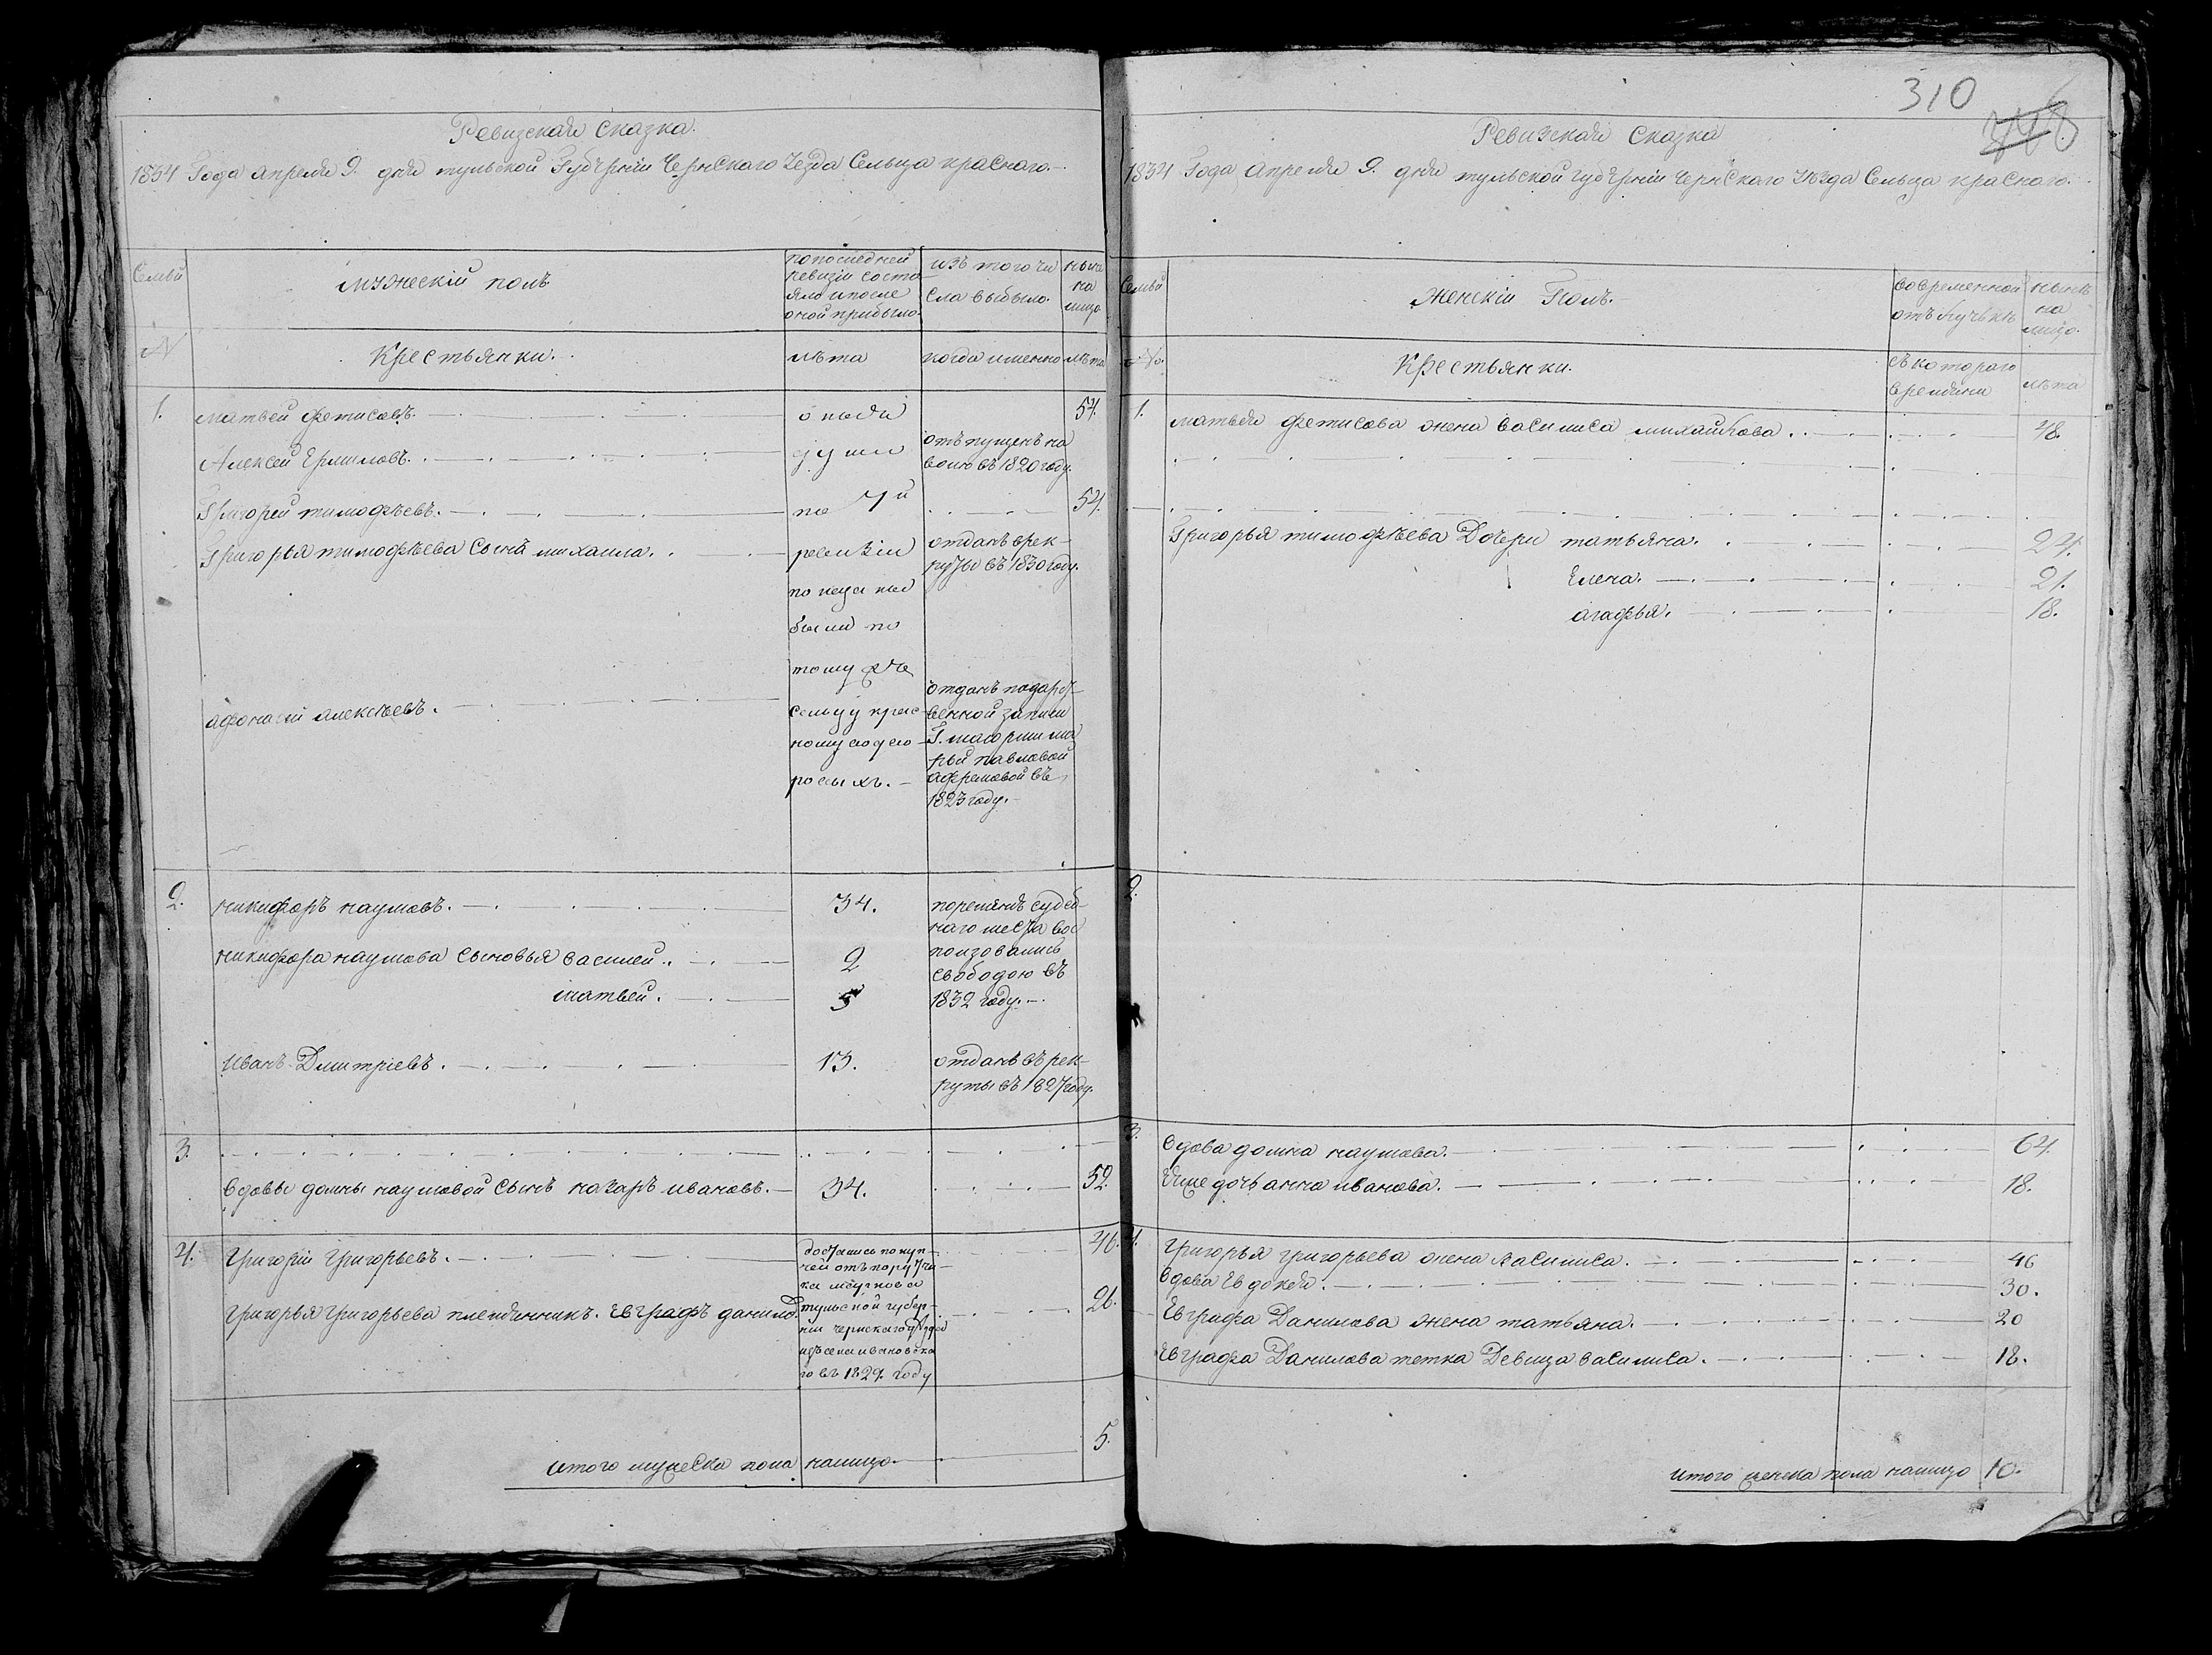 Ревизская Сказка.
1834 Года апреля 9. дня тульской Губерніи Чернскаго Уезда Сельца краснаго.
Семьи
мужескій полъ
по последней
ревизіи состо
яло и после
оной прибыло.
изъ того чи
сла выбыло.
ныне
на
лицо
№
Крестьянки.
лѣта
когда именно
лѣта
1.
матвей фетисовъ.
о ныя
54.
Алексей Ермиловъ.
души
отъпущенъ на
волю въ 1820 году.
Григорей тимофѣевъ.
по 7й
54.
Григорья тимофѣева Сынъ михаила.
ревизіи
отданъ врек-
руты въ 1830 году.
показаны
были по
тому же
афонасій алексѣевъ.
сельцу крас-
ному
отданъ подарст-
венной записи
Г. маорши ма
рьи павловой
афремовой въ
1823 году.
2.
никифоръ наумовъ.
34.
порешенѣ судеб-
наго места вос
ползовались
свободою въ
1832 году.
никифора наумова Сыновья василей.
2
матвей.
5
Иванъ Дмитріевъ.
13.
отданъ въ рек-
руты въ 1827 году.
3.
вдовы домны наумовой Сынъ назаръ ивановъ.
34.
52.
4.
Григорій Григорьевъ.
достались по куп-
чей отъ поручи-
ка
тульской губер-
ніи чернскаго уезда
изъ села ивановска
го въ 1829 году
46.
Григорья Григорьева племянникъ. Евграфъ данило.
26.
итого мужеска пола налицо
5.
310
Ревизская Сказка
1834 Года Апреля 9. дня тульской губерніи чернскаго Уѣзда Сельца краснаго.
Семьи
женскій Полъ.
вовременной
отълучькѣ
нынѣ
на
лицо.
№.
Крестьянки.
съ котораго
времяни
лѣта
1.
матвея фетисова жена василиса михайлова.
48.
Григорья тимофѣева Дочери татьяна.
24.
Елена.
21.
агафья.
18.
2.
3.
вдова домна наумова.
64
Ѣіое дочь анна иванова.
18.
4.
Григорья григорьева жена василиса.
46
вдова Евдокея.
30.
Евграфа Данилова жена татьяна.
20
Евграфа Данилова тетка Девица василиса.
18.
итого женска пола налицо
10.